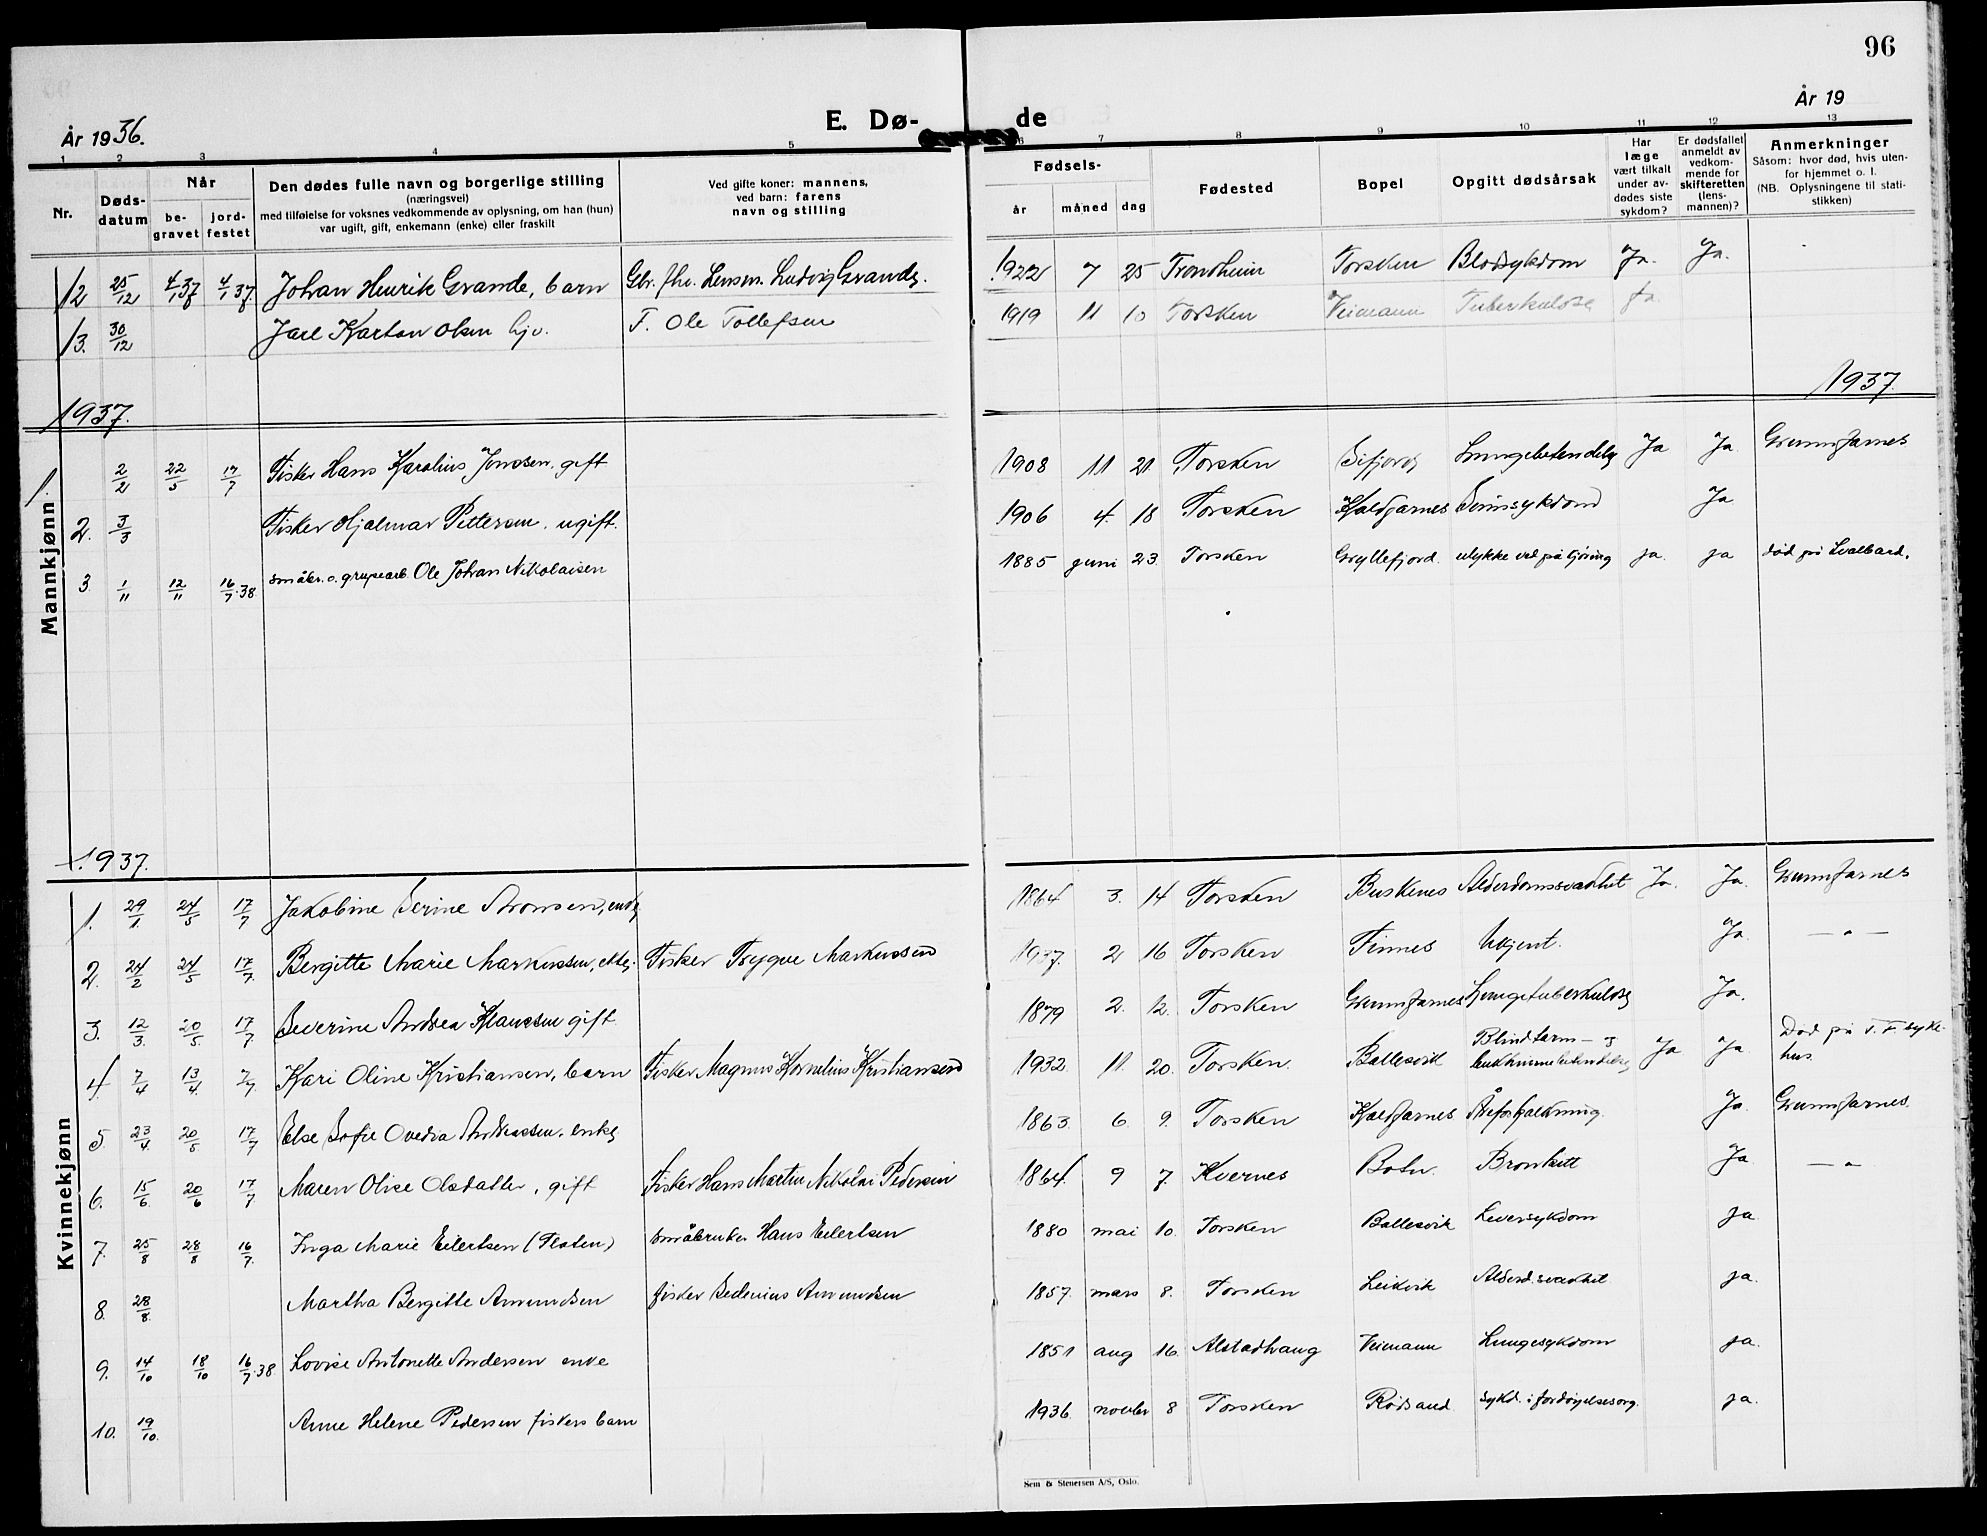 96
År 1936.
E. Dø-
de
År 19
1 2 3 4 5 6 7 8 9 10 11 12 13
Nr.
Døds-
datum
Når
be-
gravet
jord-
festet
Den dødes fulle navn og borgerlige stilling
(næringsvei)
med tilføielse for voksnes vedkommende av oplysning, om han (hun)
var ugift, gift, enkemann (enke) eller fraskilt
Ved gifte koner: mannens,
ved barn: farens
navn og stilling
Fødsels-
år måned dag
Fødested
Bopel
Opgitt dødsårsak
Har
læge
vært tilkalt
under av-
dødes siste
sykdom?
Er dødsfallet
anmeldt av
vedkom-
mende for
skifteretten
(lens-
mannen)?
Anmerkninger
Såsom: hvor død, hvis uten-
for hjemmet o. l.
(NB. Oplysningene til stati-
stikken)
12 25/12 4/1 37 4/1 37. Johan Henrik Grande, barn Gbr. fhv. Lensm. Ludvig Grande. 1922 7 25 Trondheim Torsken Blodsykdom Ja. Ja.
13. 30/12 Jarl Karton Olsen T. Ole Tollefsen 1919 11 10 Torsken Veimann Tuberkulose Ja
1937. 1937.
Mannkjønn
1. 2/2 22/5 17/7 Fisker Hans Karolius Jensen, gift 1908 11 21. Torsken Sifjord Lungebetendelse Ja Ja. Grunnfarnes
2. 3/3 Fisker Hjalmar Pettersen, ugift. 1906 4. 18 Torsken Kaldfarnes Sinnsykdom Ja
3 1/11 12/11 16/7.38. småbr. o. grubearb. Ole Johan Nikolaisen 1885 juni 23. Torsken Gryllefjord. ulykke ved på kjøring ja. ja død på Svalbard.
1937.
Kvinnekjønn
1. 29/1. 24/5 17/7 Jakobine Serine Aronsen, enke 1864 3. 14 Torsken Buskenes Alderdomssvakhet Ja. Ja. Grunnfarnes
2. 24/2 24/5 17/7. Bergitte Marie Markussen, Fisker Trygve Markussen 1937. 2 16 Torsken Finnes Ukjent. Ja — " —
3. 12/3. 20/5. 17/7 Severine Andrea Klaussen gift 1879 2. 12. Torsken Grunnfarnes Lungetuberkulose Ja.
4. 7/4 13/4. 7/7. Kari Oline Kristiansen, barn Fisker Magnus Kornelius Kristiansen 1932. 11. 20. Torsken. Ballesvik Blindtarm- og bukhinnebetendelse Ja Ja Død på T. F. syke-
hus.
5. 23/4. 20/5. 17/7 Else Sofie Ovedia Andreassen, enke 1863. 6. 9. Torsken Kaldfarnes Åreforkalkning. Ja. Grunnfarnes.
6. 15/6. 20/6 17/7 Maren Olise Olsdatter, gift Fisker Hans Martin Nikolai Pedersen 1864. 9 7. Kvernes Botn. Bronkitt Ja — " —
7. 25/8 28/8 16/7. Inga Marie Eilertsen (Flaten) småbruker Hans Eilertsen 1880 mai 10. Torsken Ballesvik Leversykdom ja.
8. 28/8. Martha Bergitte Amundsen fisker Sedenius Amundsen 1857. mars 8. Torsken Leikvik Alderd. svakhet. ja.
9. 14/10 18/10 16/7.38. Lovise Antonette Andersen enke 1851 aug 16. Alstadhaug Veimann Lungesykdom ja.
10. 19/10. Anne Helene Pedersen fiskers barn 1936. novbr 8 Torsken Rødsand sykd. i fordøyelsesorg. ja.
Sem & Stenersen A/S, Oslo.